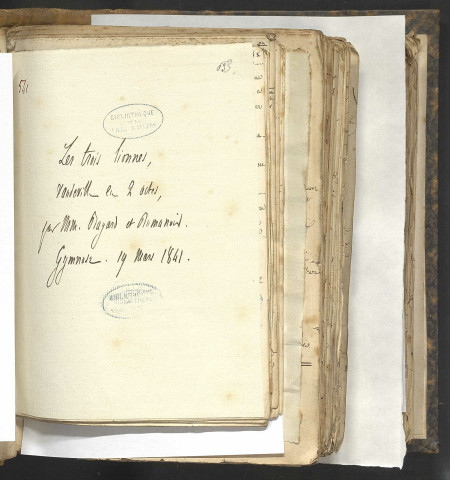 541
633.
BIBLIOTHÈQUE
Les trois lionnes,
vaudeville en 2 actes,
par Mm. Bayard et Dumanoir.
Gymnase. 19 Mars 1841.
BIBLIOTHÈQUE